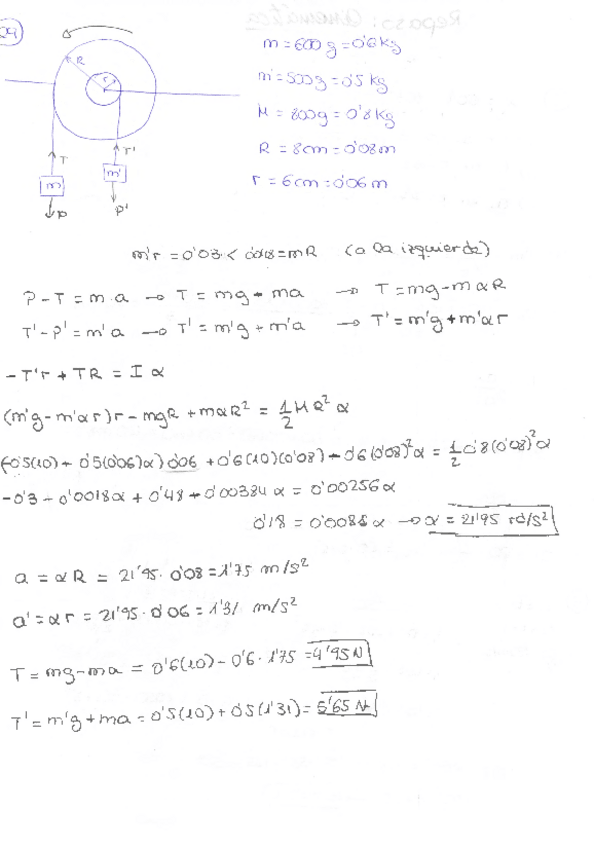 29
m = 600 g = 0'6 kg
m' = 500 g = 0'5 kg
M = 800 g = 0'8 kg
R = 8 cm = 0'08 m
r = 6 cm = 0'06 m
R
r
T
T'
m
m'
P
P'
m'r = 0'03 < 0'048 = mR (a la izquierda)
P - T = m·a → T = mg - ma → T = mg - mαR
T' - P' = m'a → T' = m'g + m'a → T' = m'g + m'αr
-T'r + TR = I α
(m'g - m'αr)r - mgR + mαR² = 1/2 MR²α
(-0'5(10) - 0'5(0'06)α) 0'06 + 0'6(10)(0'08) - 0'6(0'08)²α = 1/2 0'8(0'08)²α
-0'3 - 0'0018α + 0'48 - 0'00384α = 0'00256α
0'18 = 0'0082α → α = 21'95 rd/s²
a = αR = 21'95 · 0'08 = 1'75 m/s²
a' = αr = 21'95 · 0'06 = 1'31 m/s²
T = mg - ma = 0'6(10) - 0'6 · 1'75 = 4'95 N
T' = m'g + ma = 0'5(10) + 0'5(1'31) = 5'65 N